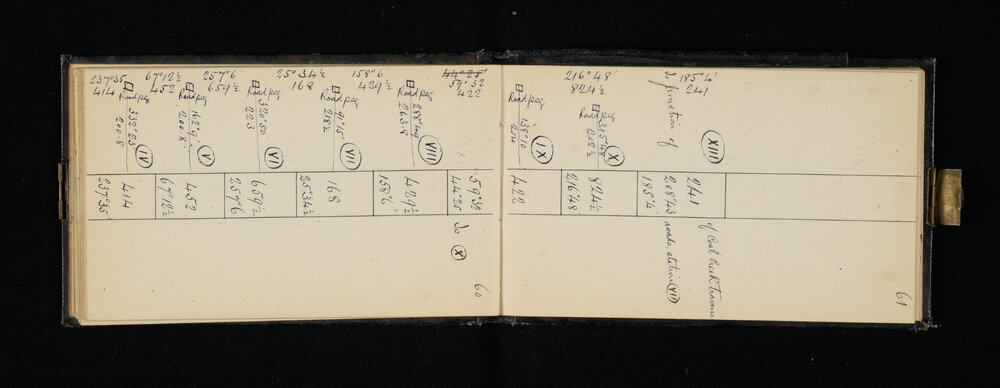 237°35
414
Road peg
332°23
200.8
IV
67°12½
452
Road peg
162°9
200.8
V
257°6
659½
Road peg
320°50
223
VI
25°34½
168
Road peg
91°15
218½
VII
158°6
429½
Road peg
288°49
263.8
VIII
44°25'
59°32
422
Road peg
138°10
204
IX
216°48'
824½
Road peg
315°48
202½
X
185°4'
241
To junction of
XIII
237°35'
414
67°12½
452
257°6
659½
25°34½
168
158°6'
429½
44°25
59°32
422
216°48
824½
185°4'
208°43
241
To X
60
roads station VII
of Coal Creek traverse
61